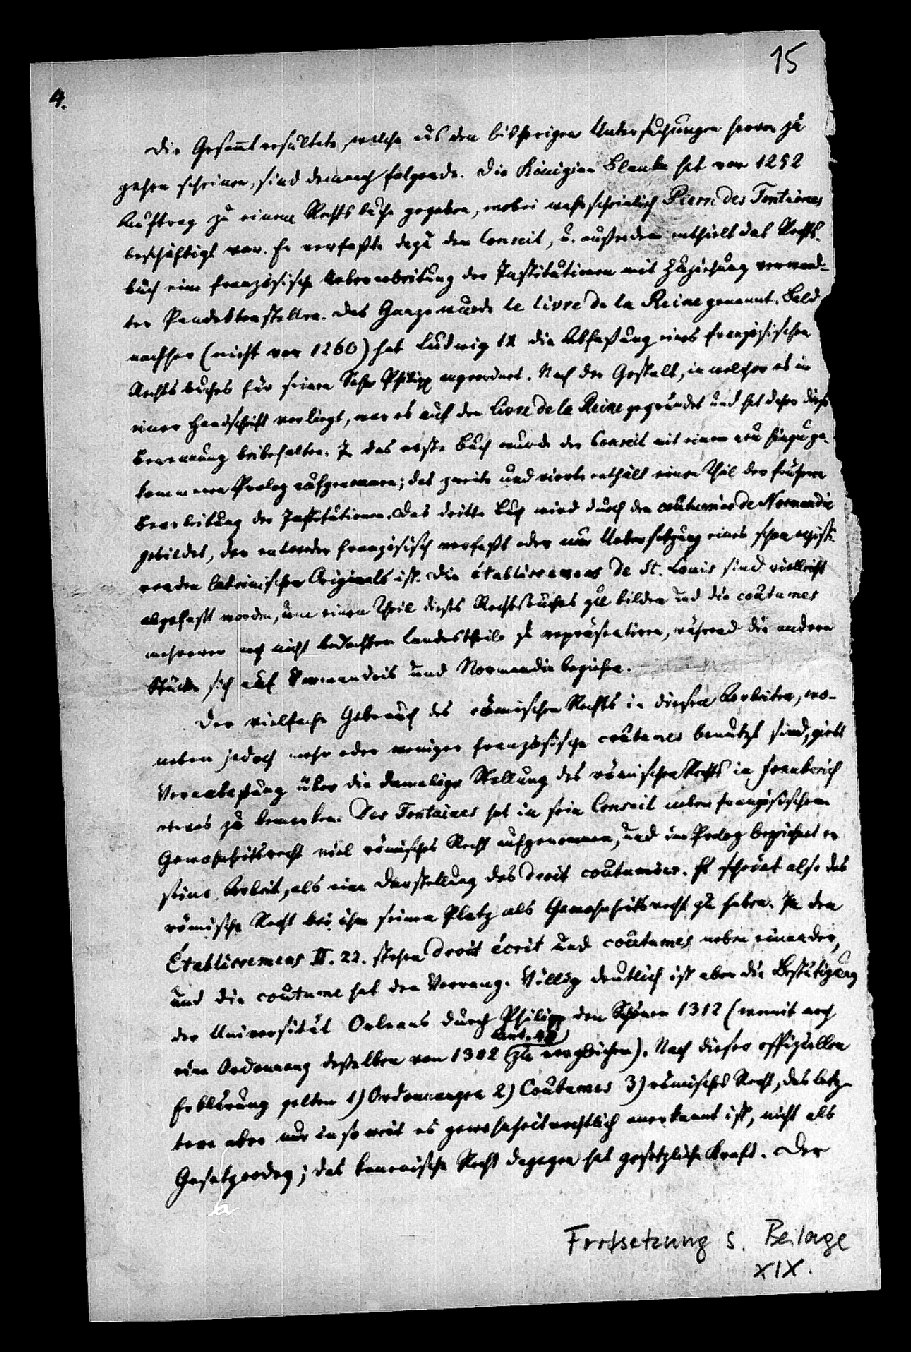 15
4.
Die Gesammtresultate, welche aus den bisherigen Untersuchungen hervor zu
gehen scheinen, sind demnach folgende. Die Königinn Blanka hat vor 1252
Auftrag zu einem Rechtsbuche gegeben, wobei wahrscheinlich Pierre des Fontaines
beschäftigt war. Er verfaßte dazu den Conseil, u. außerdem enthielt das Rechts-
buch eine französische Ueberarbeitung der Institutionen mit Zuziehung verwand-
ter Pandektenstellen. Das Ganze wurde le livre de la Reine genannt. Bald
nachher (nicht vor 1260) hat Ludwig IX die Abfaßung eines französischen
Rechtsbuches für seinen Sohn Philipp angeordnet. Nach der Gestalt, in welcher es in
einer Handschrift vorliegt, war es auf den livre de la Reine gegründet und hat daher diese
Benennung beibehalten. In das erste Buch wurde der Conseil mit einem neu hinzuge
kommenen Prolog aufgenommen; das zweite und vierte enthält einen Theil der frühern
Bearbeitung der Institutionen. Das dritte Buch wird durch den coutumier de Normandie
gebildet, der entweder französisch verfaßt oder nur Uebersetzung eines schon existi-
renden lateinischen Originals ist. Die établissemens de St. Louis sind vielleicht
abgefaßt worden, um einen Theil dieses Rechtsbuches zu bilden und die coutumes
mehrerer noch nicht bedachten Landestheile zu repräsentiren, während die andern
Stücke sich auf Vermandois und Normandie beziehn.
Der vielfache Gebrauch des römischen Rechts in diesen Arbeiten, wo-
neben jedoch mehr oder weniger französische coutumes benutzt sind, giebt
Veranlaßung über die damalige Stellung des römischen Rechts in Frankreich
etwas zu bemerken. Des Fontaines hat in sein Conseil neben französischem
Gewohnheitsrecht viel römisches Recht aufgenommen, und im Prolog bezeichnet er
seine Arbeit, als eine Darstellung des droit coutumier. Es scheint also das
römische Recht bei ihm seinen Platz als Gewohnheitsrecht zu haben. In den
Établissemens II. 22. stehen droit écrit und coutumes neben einander,
und die coutume hat den Vorrang. Völlig deutlich ist aber die Bestätigung
der Universität Orleans durch Philipp den Schönen 1312 (womit noch
eine Ordonnanz desselben von 1302 zu vergleichen). Nach dieser offiziellen
Erklärung gelten 1) Ordonnanzen 2) Coutumes 3) römisches Recht, das letz-
tere aber nur in so weit es gewohnheitsrechtlich anerkannt ist, nicht als
Gesetz; das kanonische Recht dagegen hat gesetzliche Kraft. Der
Frotsetzung s. Beilage
XIX.